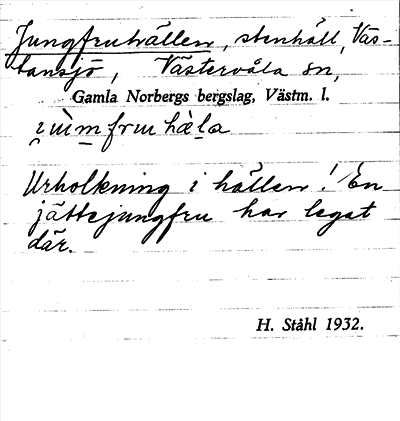 Jungfruhällen, stenhäll, Väs-
tansjö, Västervåla sn,
Gamla Norbergs bergslag, Västm. l.
fru hàla
Urholkning i hällen! En
jättejungfru har legat
där.
H. Ståhl 1932.